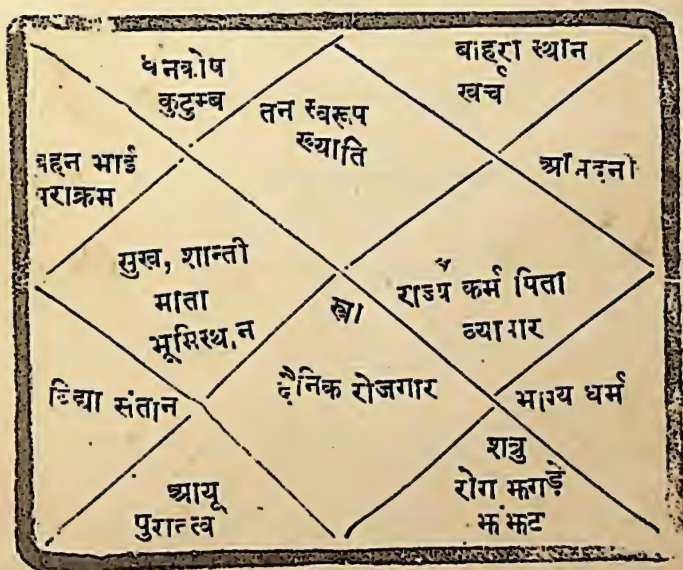 धनकोष
कुटुम्ब
तन स्वरूप
ख्याति
बाहरा स्थान
खर्च
बहन भाई
पराक्रम
आमदनी
सुख, शान्ती
माता
भूमिस्थान
राज्य कर्म पिता
व्यापार
स्त्री
दैनिक रोजगार
विद्या संतान
भाग्य धर्म
आयू
पुरातत्व
शत्रु
रोग झगड़े
झंझट